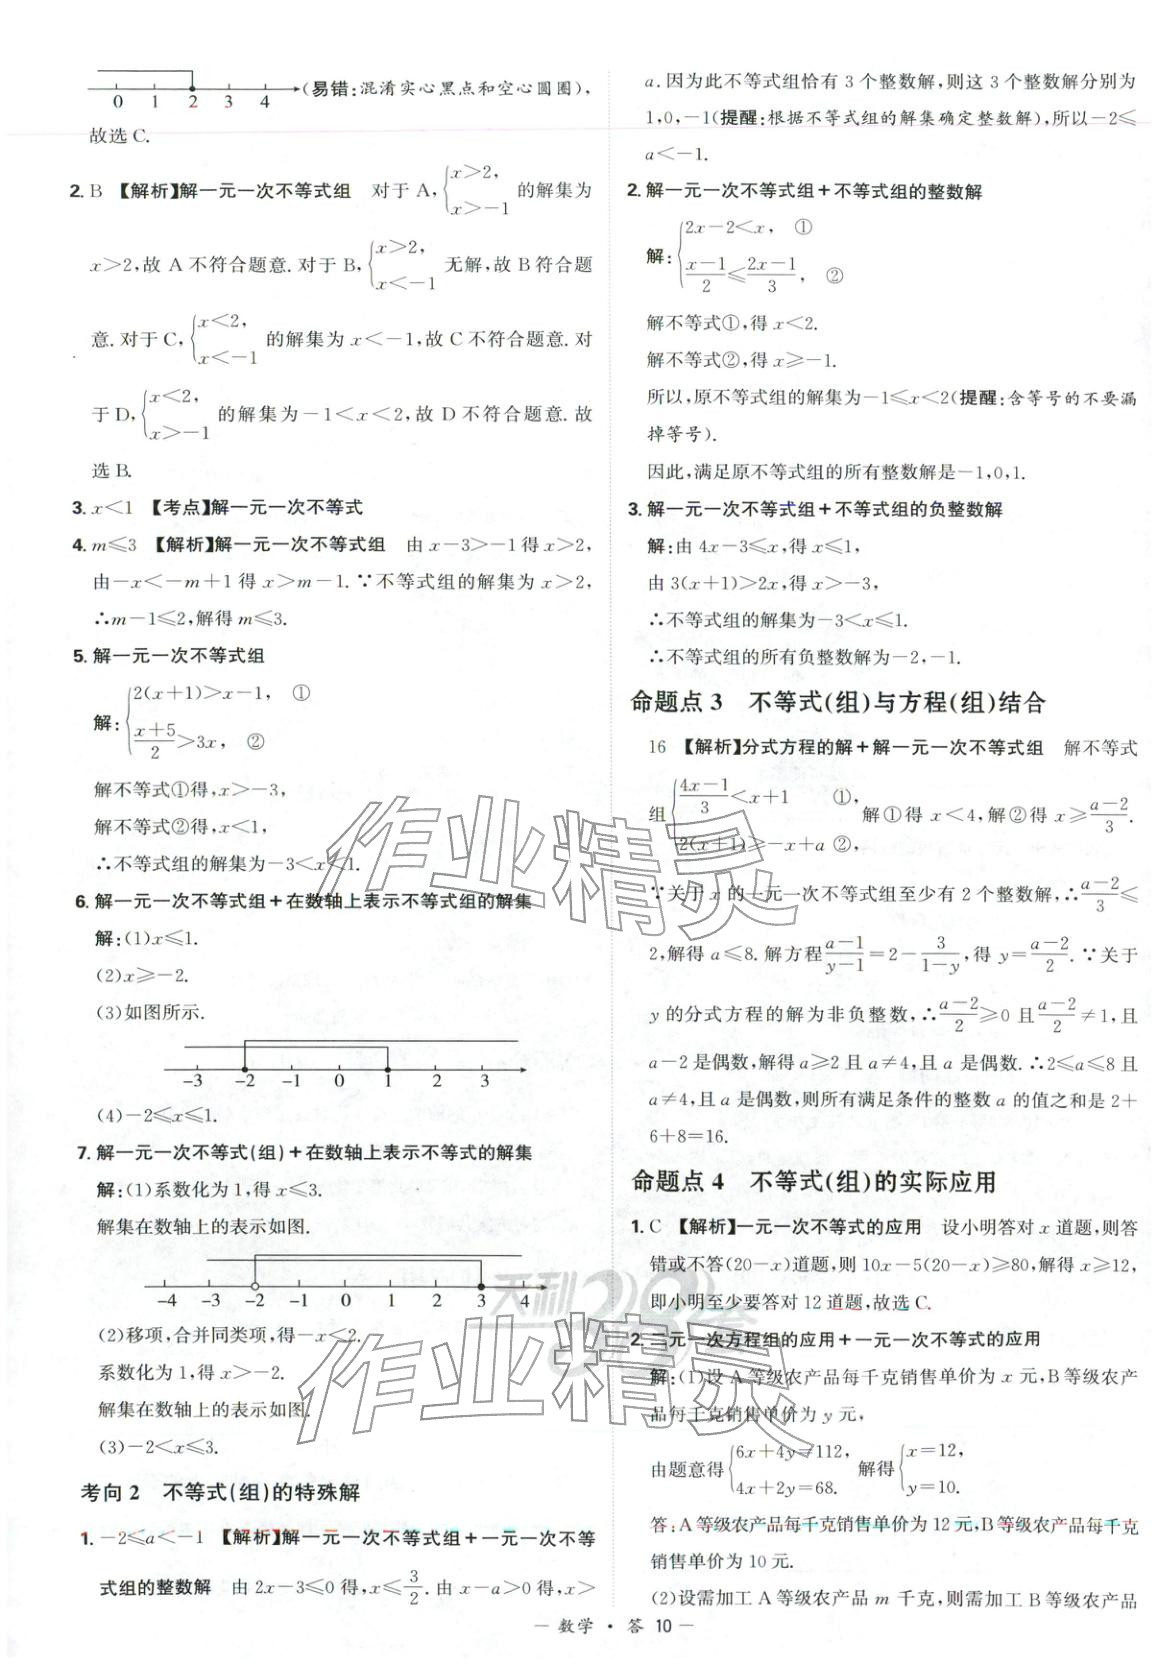 0 1 2 3 4 (易错:混淆实心黑点和空心圆圈),
故选 C.
2. B 【解析】解一元一次不等式组 对于 A,{x>2, x>-1 的解集为
x>2,故 A 不符合题意.对于 B,{x>2, x<-1 无解,故 B 符合题
意.对于 C,{x<2, x<-1 的解集为 x<-1,故 C 不符合题意.对
于 D,{x<2, x>-1 的解集为-1<x<2,故 D 不符合题意.故
选 B.
3. x<1 【考点】解一元一次不等式
4. m≤3 【解析】解一元一次不等式组 由 x-3>-1 得 x>2,
由-x<-m+1 得 x>m-1.∵不等式组的解集为 x>2,
∴m-1≤2,解得 m≤3.
5. 解一元一次不等式组
解:{2(x+1)>x-1, ① (x+5)/2>3x, ②
解不等式①得,x>-3,
解不等式②得,x<1,
∴不等式组的解集为-3<x<1.
6. 解一元一次不等式组+在数轴上表示不等式组的解集
解:(1)x≤1.
(2)x≥-2.
(3)如图所示.
-3 -2 -1 0 1 2 3
(4)-2≤x≤1.
7. 解一元一次不等式(组)+在数轴上表示不等式的解集
解:(1)系数化为 1,得 x≤3.
解集在数轴上的表示如图.
-4 -3 -2 -1 0 1 2 3 4
(2)移项,合并同类项,得-x<2.
系数化为 1,得 x>-2.
解集在数轴上的表示如图.
(3)-2<x≤3.
考向 2 不等式(组)的特殊解
1. -2≤a<-1 【解析】解一元一次不等式组+一元一次不等
式组的整数解 由 2x-3≤0 得,x≤3/2.由 x-a>0 得,x>
a.因为此不等式组恰有 3 个整数解,则这 3 个整数解分别为
1,0,-1(提醒:根据不等式组的解集确定整数解),所以-2≤
a<-1.
2. 解一元一次不等式组+不等式组的整数解
解:{2x-2<x, ① (x-1)/2≤(2x-1)/3, ②
解不等式①,得 x<2.
解不等式②,得 x≥-1.
所以,原不等式组的解集为-1≤x<2(提醒:含等号的不要漏
掉等号).
因此,满足原不等式组的所有整数解是-1,0,1.
3. 解一元一次不等式组+不等式组的负整数解
解:由 4x-3≤x,得 x≤1,
由 3(x+1)>2x,得 x>-3,
∴不等式组的解集为-3<x≤1.
∴不等式组的所有负整数解为-2,-1.
命题点 3 不等式(组)与方程(组)结合
16 【解析】分式方程的解+解一元一次不等式组 解不等式
组{(4x-1)/3<x+1 ①, 2(x+1)≥-x+a ②, 解①得 x<4,解②得 x≥(a-2)/3.
∵关于 x 的一元一次不等式组至少有 2 个整数解,∴(a-2)/3≤
2,解得 a≤8.解方程(a-1)/(y-1)=2-3/(1-y),得 y=(a-2)/2.∵关于
y 的分式方程的解为非负整数,∴(a-2)/2≥0 且(a-2)/2≠1,且
a-2 是偶数,解得 a≥2 且 a≠4,且 a 是偶数.∴2≤a≤8 且
a≠4,且 a 是偶数,则所有满足条件的整数 a 的值之和是 2+
6+8=16.
命题点 4 不等式(组)的实际应用
1. C 【解析】一元一次不等式的应用 设小明答对 x 道题,则答
错或不答(20-x)道题,则 10x-5(20-x)≥80,解得 x≥12,
即小明至少要答对 12 道题,故选 C.
2. 二元一次方程组的应用+一元一次不等式的应用
解:(1)设 A 等级农产品每千克销售单价为 x 元,B 等级农产
品每千克销售单价为 y 元,
由题意得{6x+4y=112, 4x+2y=68. 解得{x=12, y=10.
答:A 等级农产品每千克销售单价为 12 元,B 等级农产品每千克
销售单价为 10 元.
(2)设需加工 A 等级农产品 m 千克,则需加工 B 等级农产品
— 数学·答 10 —
作业精灵
天利38套
作业精灵